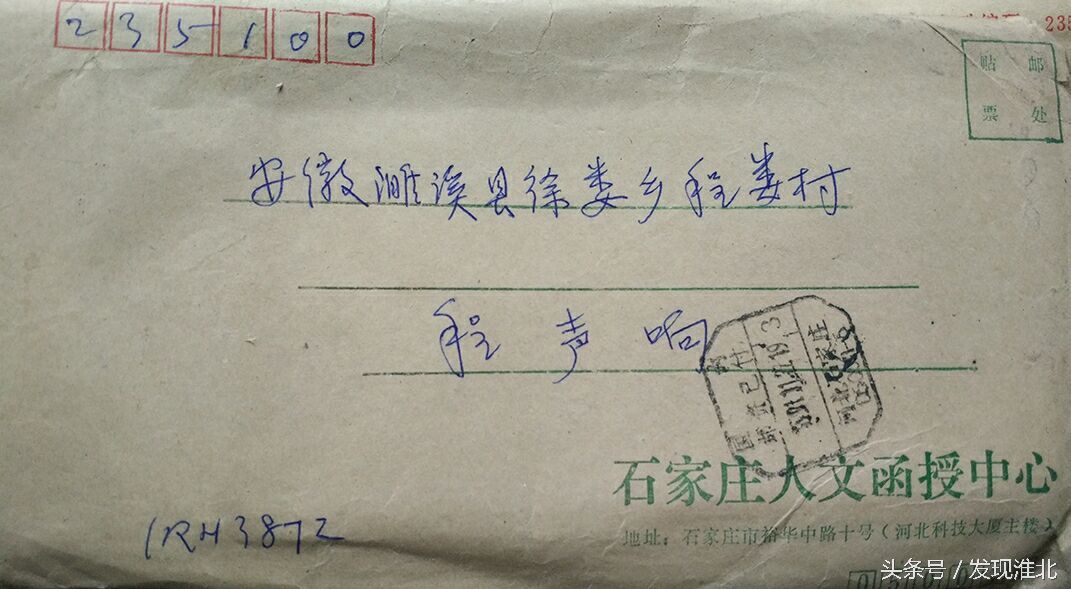 235100
235
贴邮
票处
安徽濉溪县徐娄乡程娄村
程声响
国
邮资已付
河北石家庄
石家庄人文函授中心
地址:石家庄市裕华中路十号(河北科技大厦主楼)
1RH3872
头条号/发现淮北